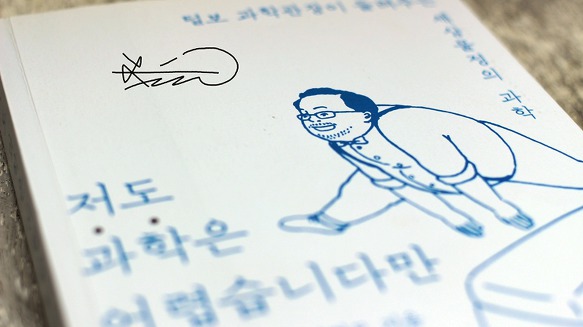 털보 과학관장이 들려주는
세상물정의 과학
저도
과학은
어렵습니다만